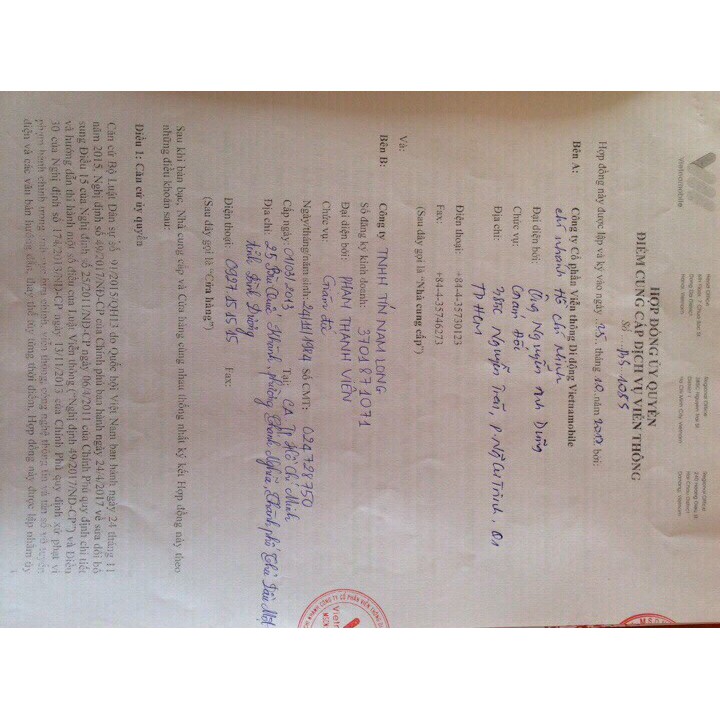 vietnamobile
Head Office
Hanoi Vietnam
Regional Office
285C Nguyen Trai St
District 1
Ho Chi Minh City, Vietnam
Regional Office
Hai Chau District
Danang, Vietnam
HỢP ĐỒNG ỦY QUYỀN
ĐIỂM CUNG CẤP DỊCH VỤ VIỄN THÔNG
Số 1055
Hợp đồng này được lập và ký vào ngày 25 tháng 10 năm 2017 bởi:
Bên A: Công ty Cổ phần Viễn thông Di động Vietnamobile
chi nhánh Hồ Chí Minh
Đại diện bởi: Ông Nguyễn Anh Dũng
Chức vụ: Giám Đốc
Địa chỉ: 285C Nguyễn Trãi, P. Ng Cư Trinh, Q1
TP HCM
Điện thoại: +84-4-35730123
Fax: +84-4-35746273
(Sau đây gọi là "Nhà cung cấp")
Và:
Bên B: Công ty TNHH TÍN NAM LONG
Số đăng ký kinh doanh: 3701871071
Đại diện bởi: PHAN THANH VIÊN
Chức vụ: Giám đốc
Ngày/tháng/năm sinh: 24/11/1984 Số CMT: 024728750
Cấp ngày: 01/03/2013 Tại: CA TP Hồ Chí Minh
Địa chỉ: 25 Bùi Quốc Khánh, Phường Chánh Nghĩa, Thành phố Thủ Dầu Một
tỉnh Bình Dương
Điện thoại: 0927 15 15 15 Fax:
(Sau đây gọi là "Cửa hàng")
Sau khi bàn bạc, Nhà cung cấp và Cửa hàng cùng nhau thống nhất ký kết Hợp đồng này theo
những điều khoản sau:
Điều 1: Căn cứ ủy quyền
Căn cứ Bộ Luật Dân sự số 91/2015/QH13 do Quốc hội Việt Nam ban hành ngày 24 tháng 11
năm 2015, Nghị định số 49/2017/NĐ-CP của Chính phủ ban hành ngày 24/4/2017 về sửa đổi bổ
sung Điều 15 của Nghị định số 25/2011/NĐ-CP ngày 06/4/2011 của Chính Phủ quy định chi tiết
và hướng dẫn thi hành một số điều của Luật Viễn thông ("Nghị định 49/2017/NĐ-CP") và Điều
30 của Nghị định số 174/2013/NĐ-CP ngày 13/11/2013 của Chính Phủ quy định xử phạt vi
phạm hành chính trong lĩnh vực bưu chính, viễn thông, công nghệ thông tin và tần số vô tuyến
điện và các văn bản hướng dẫn, thay thế tùy từng thời điểm, Hợp đồng này được lập nhằm ủy
CHI NHÁNH CÔNG TY CỔ PHẦN VIỄN THÔNG DI